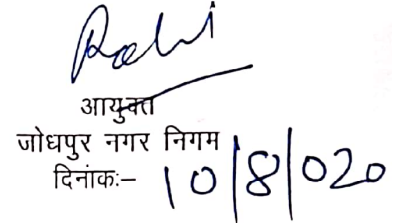 आयुक्त
जोधपुर नगर निगम
दिनांक:– 10/8/020